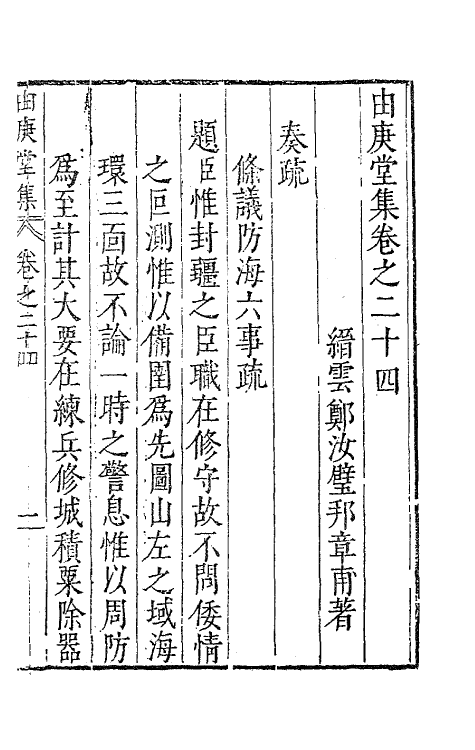 由庚堂集卷之二十四
縉雲鄭汝璧邦章甫著
奏疏
條議防海六事疏
題臣惟封疆之臣職在修守故不問倭情
之叵測惟以備圉爲先圖山左之域海
環三面故不論一時之警息惟以周防
爲至計其大要在練兵修城積粟除器
由庚堂集 卷之二十四 一